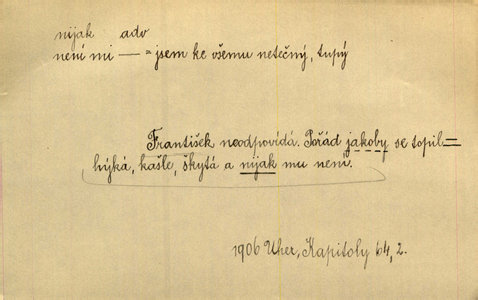 nijak adv
není mi — = jsem ke všemu netečný, tupý
František neodpovídá. Pořád jakoby se topil =
hýká, kašle, škytá a nijak mu není.
1906 Uher, Kapitoly 64, 2.